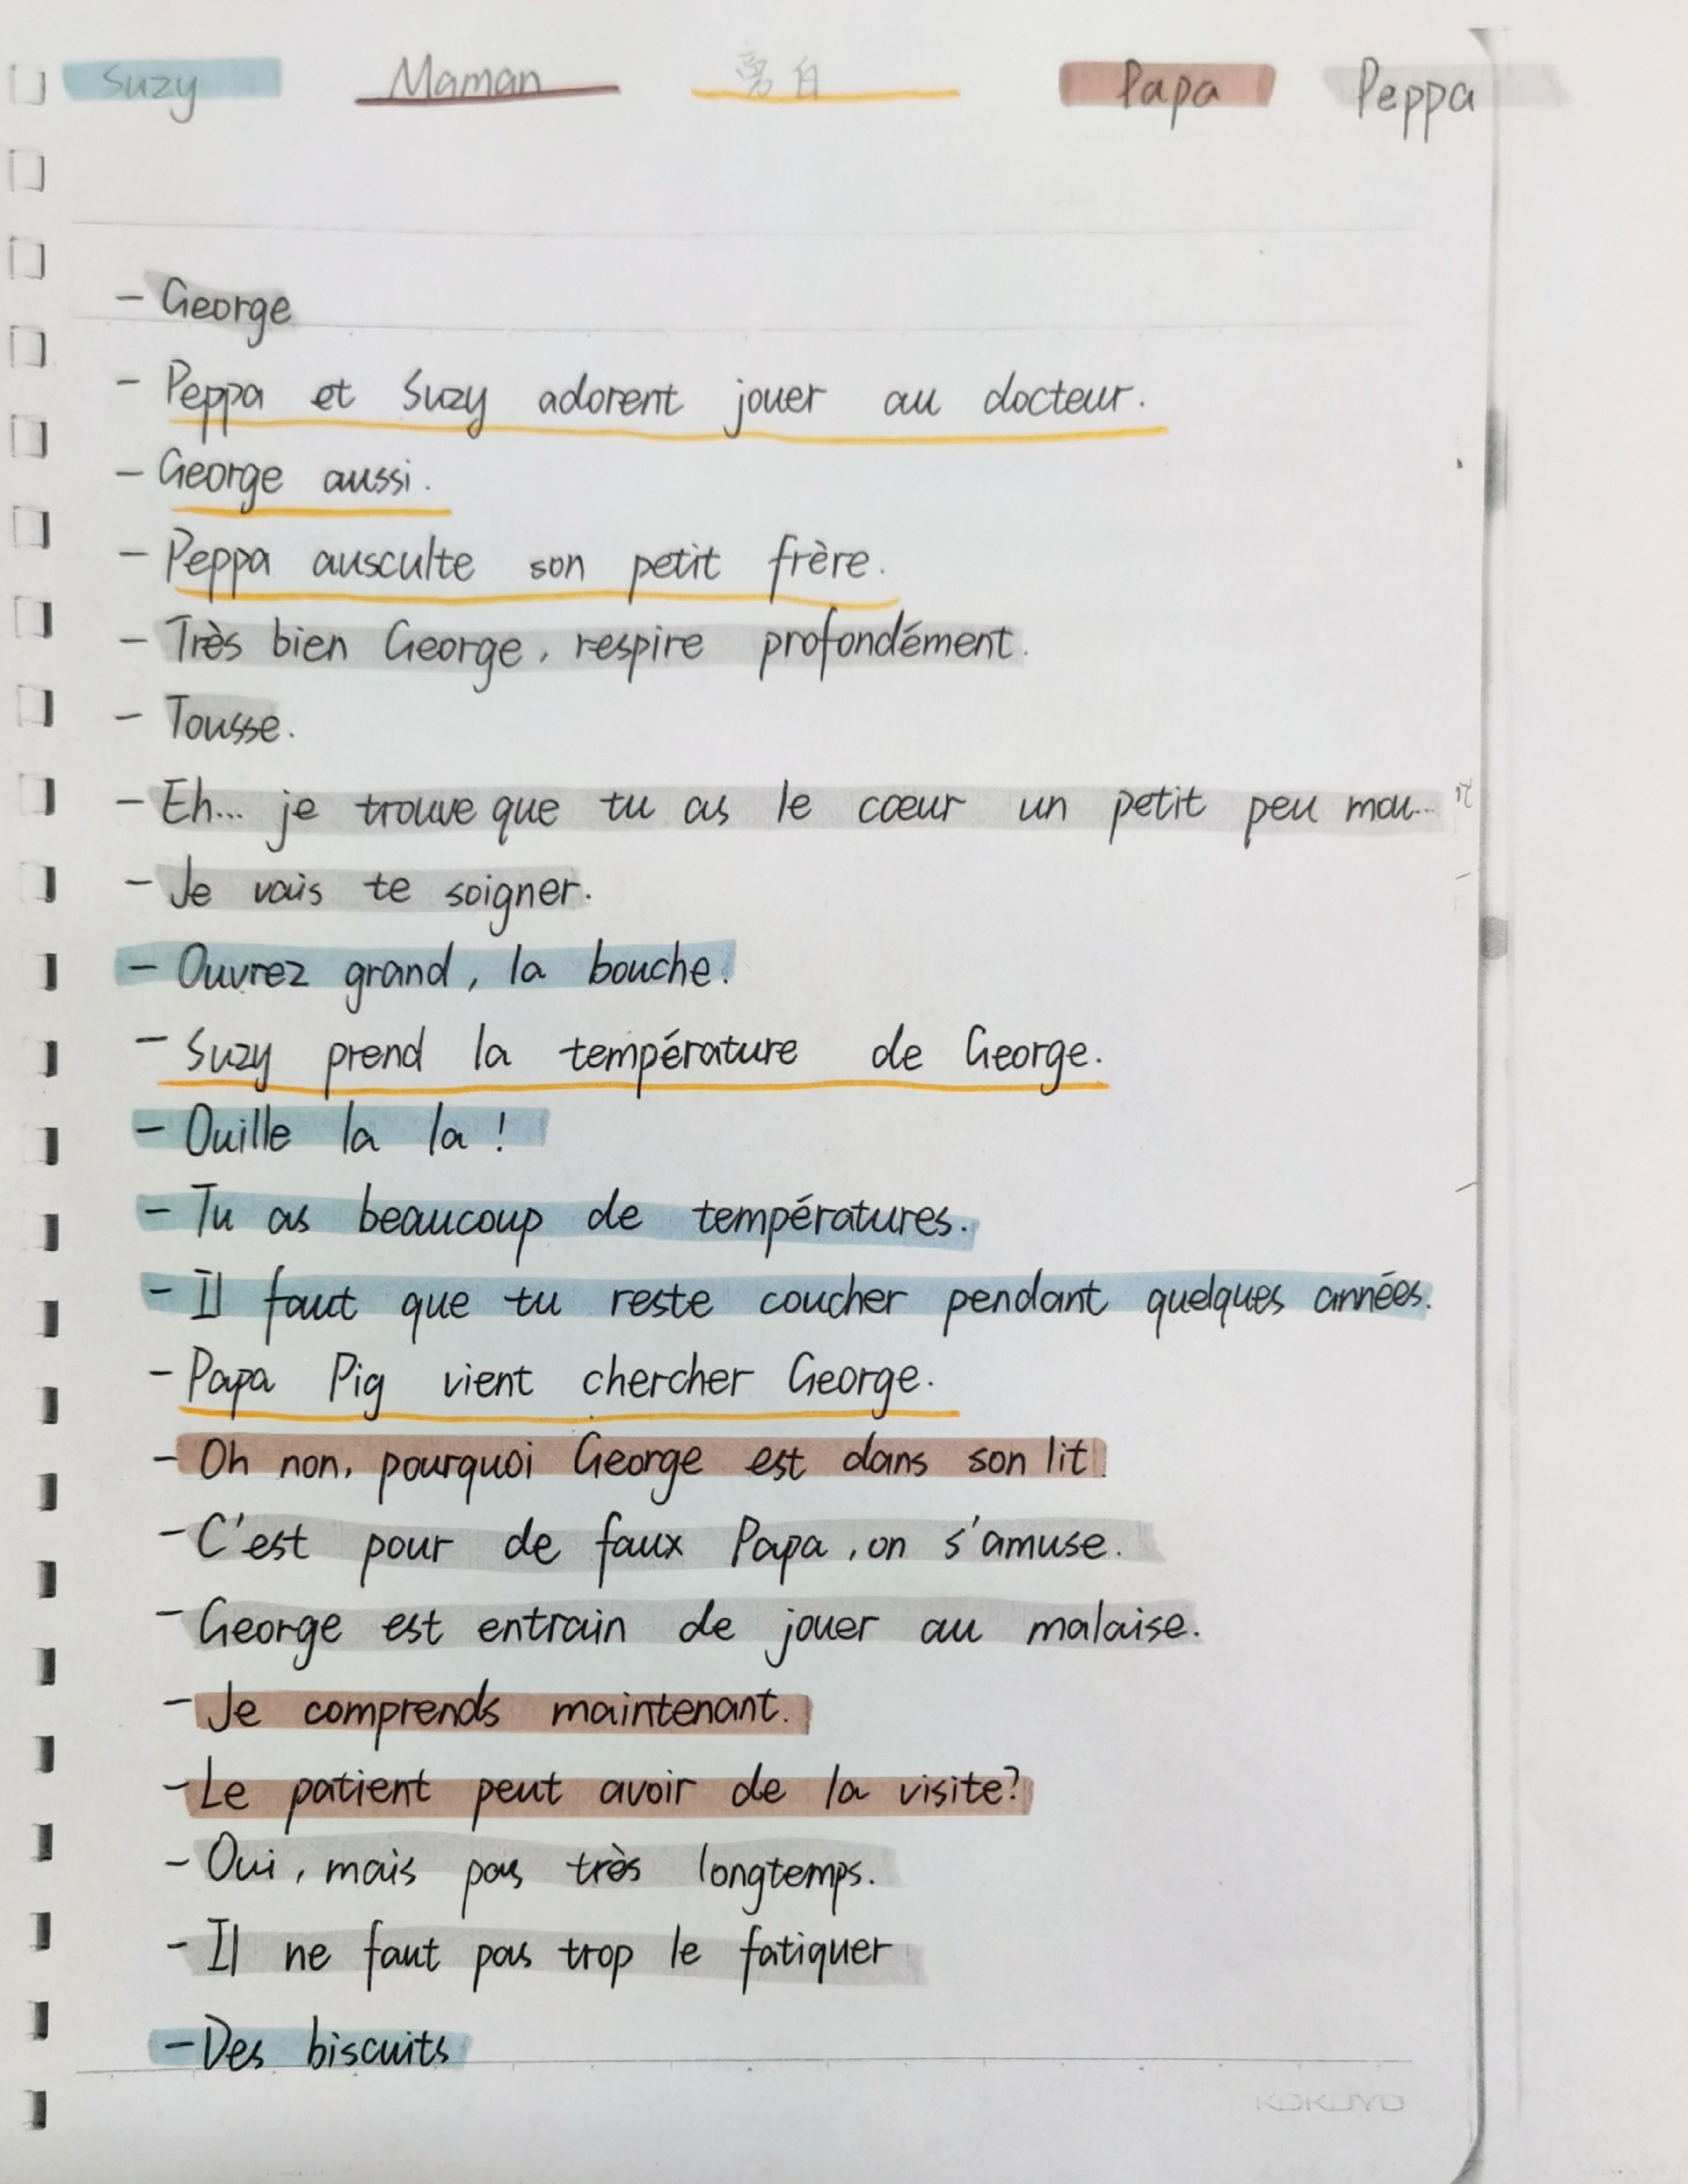 Suzy Maman 旁白 Papa Peppa
- George
- Peppa et Suzy adorent jouer au docteur.
- George aussi.
- Peppa ausculte son petit frère.
- Très bien George, respire profondément.
- Tousse.
- Eh... je trouve que tu as le cœur un petit peu mou...
- Je vais te soigner.
- Ouvrez grand, la bouche.
- Suzy prend la température de George.
- Ouille la la !
- Tu as beaucoup de températures.
- Il faut que tu reste coucher pendant quelques années.
- Papa Pig vient chercher George.
- Oh non, pourquoi George est dans son lit!
- C'est pour de faux Papa, on s'amuse.
- George est entrain de jouer au malaise.
- Je comprends maintenant.
- Le patient peut avoir de la visite?
- Oui, mais pas très longtemps.
- Il ne faut pas trop le fatiguer
- Des biscuits
KOKUYO